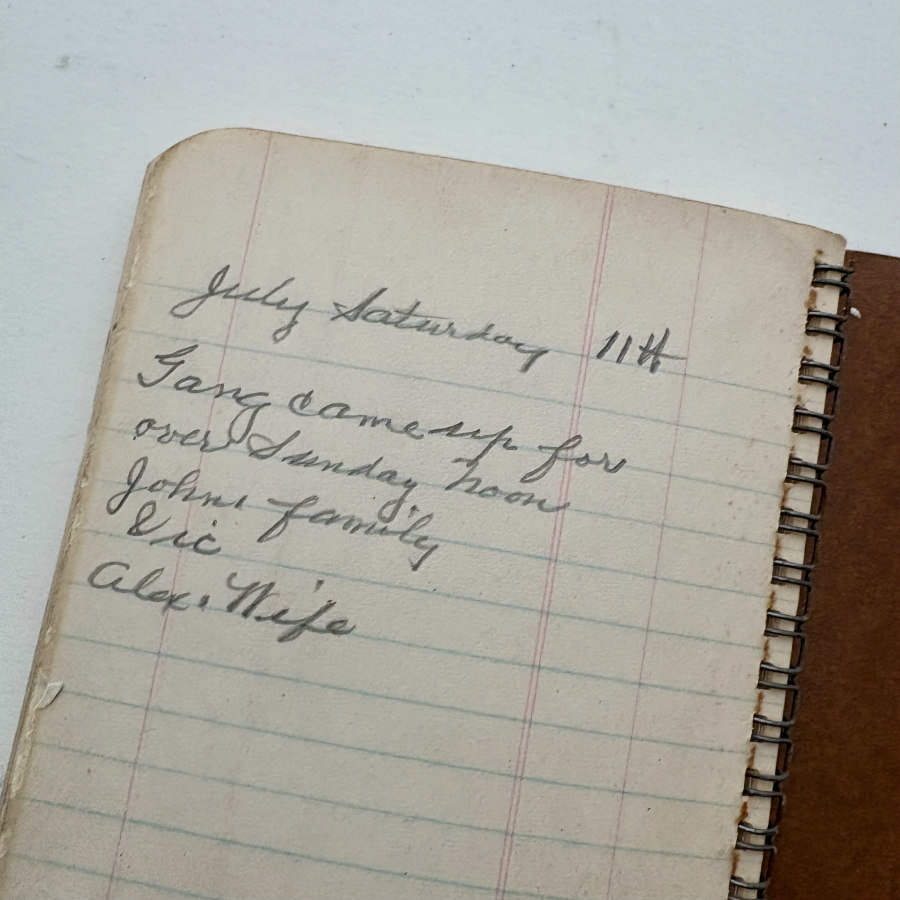 July Saturday 11th
Gang came up for
over Sunday, noon
John, family
Vic
Alex, Wife